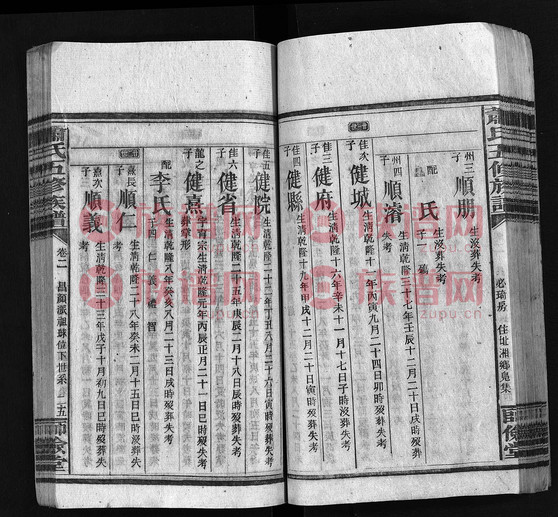 蕭氏五修族譜
必琦房 住址湘鄉
師儉堂
州三子 順朋 生歿葬失考
配 氏 生歿葬失考
子一 瑞
州四子 順濬 生清乾隆三十七年壬辰十二月二日戌時歿葬失考
佳次子 健城 生清乾隆十一年丙寅九月二十四日卯時歿葬失考
佳三子 健府 生清乾隆十六年辛未十一月十七日子時歿葬失考
佳四子 健縣 生清乾隆十九年甲戌十二月二十日寅時歿葬失考
佳五子 健院 生清乾隆二十二年丁丑八月二十六日寅時歿葬失考
佳六子 健省 生清乾隆二十五年庚辰二月十八日辰時歿葬失考
龍之子 健熹 字育宗生清乾隆元年丙辰正月二十一日巳時歿失考
葬掌形
配 李氏 生清乾隆八年癸亥八月二十三日戌時歿葬失考
子四 仁 義 禮 智
熹長子 順仁 生清乾隆二十八年癸未二月十五日巳時歿葬失考
熹次子 順義 生清乾隆三十三年戊子十月初九日巳時歿葬失考
蕭氏五修族譜
卷二 昌顏派祖錄位下世系
師儉堂
族譜网
www.zupu.cn